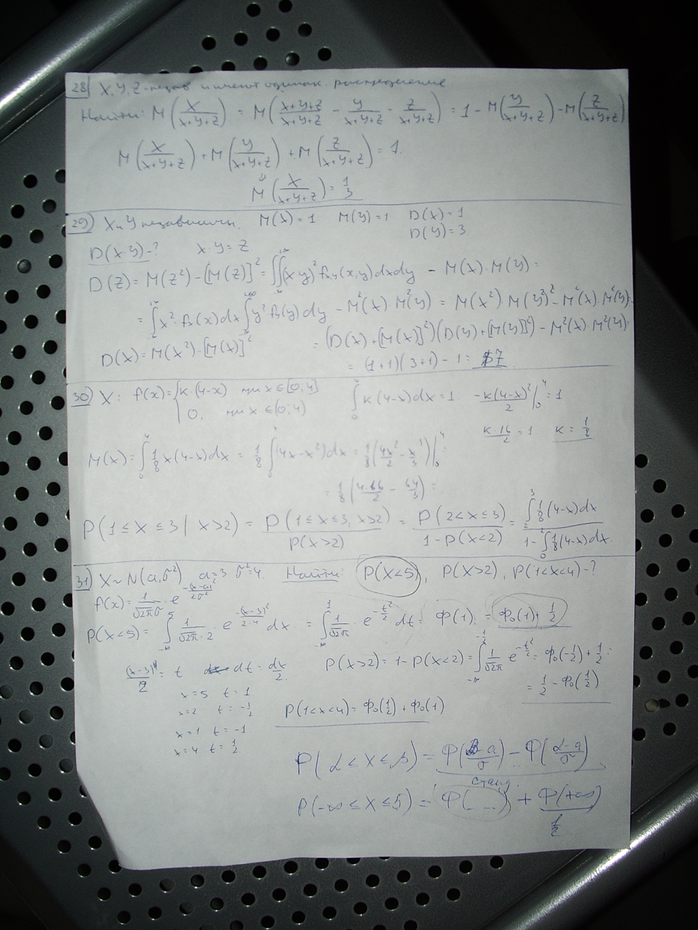 28) X, Y, Z - незав и имеют одинак. распределение
Найти: M(X/(X+Y+Z)) = M((X+Y+Z)/(X+Y+Z) - Y/(X+Y+Z) - Z/(X+Y+Z)) = 1 - M(Y/(X+Y+Z)) - M(Z/(X+Y+Z))
M(X/(X+Y+Z)) + M(Y/(X+Y+Z)) + M(Z/(X+Y+Z)) = 1.
⇓
M(X/(X+Y+Z)) = 1/3
29) X и Y независимы. M(X)=1 M(Y)=1 D(X)=1
D(Y)=3
D(X·Y)-? X·Y=Z
D(Z) = M(Z²) - [M(Z)]² = ∬(x·y)² f(x,y)dxdy - M(X)·M(Y) =
= ∫x²·fx(x)dx ∫y²·fy(y)dy - M²(X)·M²(Y) = M(X²)·M(Y)² - M²(X)·M²(Y)
D(X)=M(X²)-[M(X)]² = (D(X)+[M(X)]²)(D(Y)+[M(Y)]²) - M²(X)·M²(Y)
= (1+1)(3+1) - 1 = 7
30) X: f(x)= { k·(4-x) при x∈[0;4] ∫₀⁴ k(4-x)dx = 1 -k(4-x)²/2 |₀⁴ = 1
0, при x∈(0;4)
k·16/2 = 1 k = 1/8
M(X) = ∫₀⁴ 1/8 x(4-x)dx = 1/8 ∫₀⁴ (4x-x²)dx = 1/8 (4x²/2 - x³/3)|₀⁴ =
= 1/8 (4·16/2 - 64/3) =
P(1≤X≤3 | X>2) = P(1≤X≤3, X>2)/P(X>2) = P(2<X≤3)/(1-P(X<2)) = ∫₂³ 1/8(4-x)dx / (1-∫₀² 1/8(4-x)dx)
31) X~N(a,σ²) a=3 σ²=4. Найти: P(X<5), P(X>2), P(1<X<4)-?
f(x) = 1/(√2π σ) · e^(-(x-a)²/2σ²)
P(X<5) = ∫₋∞⁵ 1/(√2π·2) e^(-(x-3)²/2·4) dx = ∫₋∞¹ 1/√2π e^(-t²/2) dt = Φ(1) = Φ₀(1)+1/2
(x-3)/2 = t dt = dx/2 P(X>2) = 1-P(X<2) = ∫₋∞^(-1/2) 1/√2π e^(-t²/2) = Φ₀(-1/2)+1/2 =
x=5 t=1 = 1/2 - Φ₀(1/2)
x=2 t=-1/2
P(1<X<4) = Φ₀(1/2) + Φ₀(1)
x=1 t=-1
x=4 t=1/2
P(α<X≤β) = Φ((β-a)/σ) - Φ((α-a)/σ)
станд
P(-∞≤X≤5) = Φ(...) + Φ(+∞)
1/2